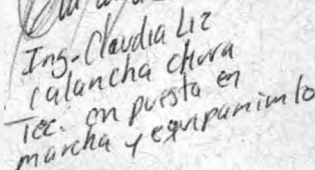 Ing. Claudia Liz
Calancha chura
Tec. en puesta en
marcha y equipamiento